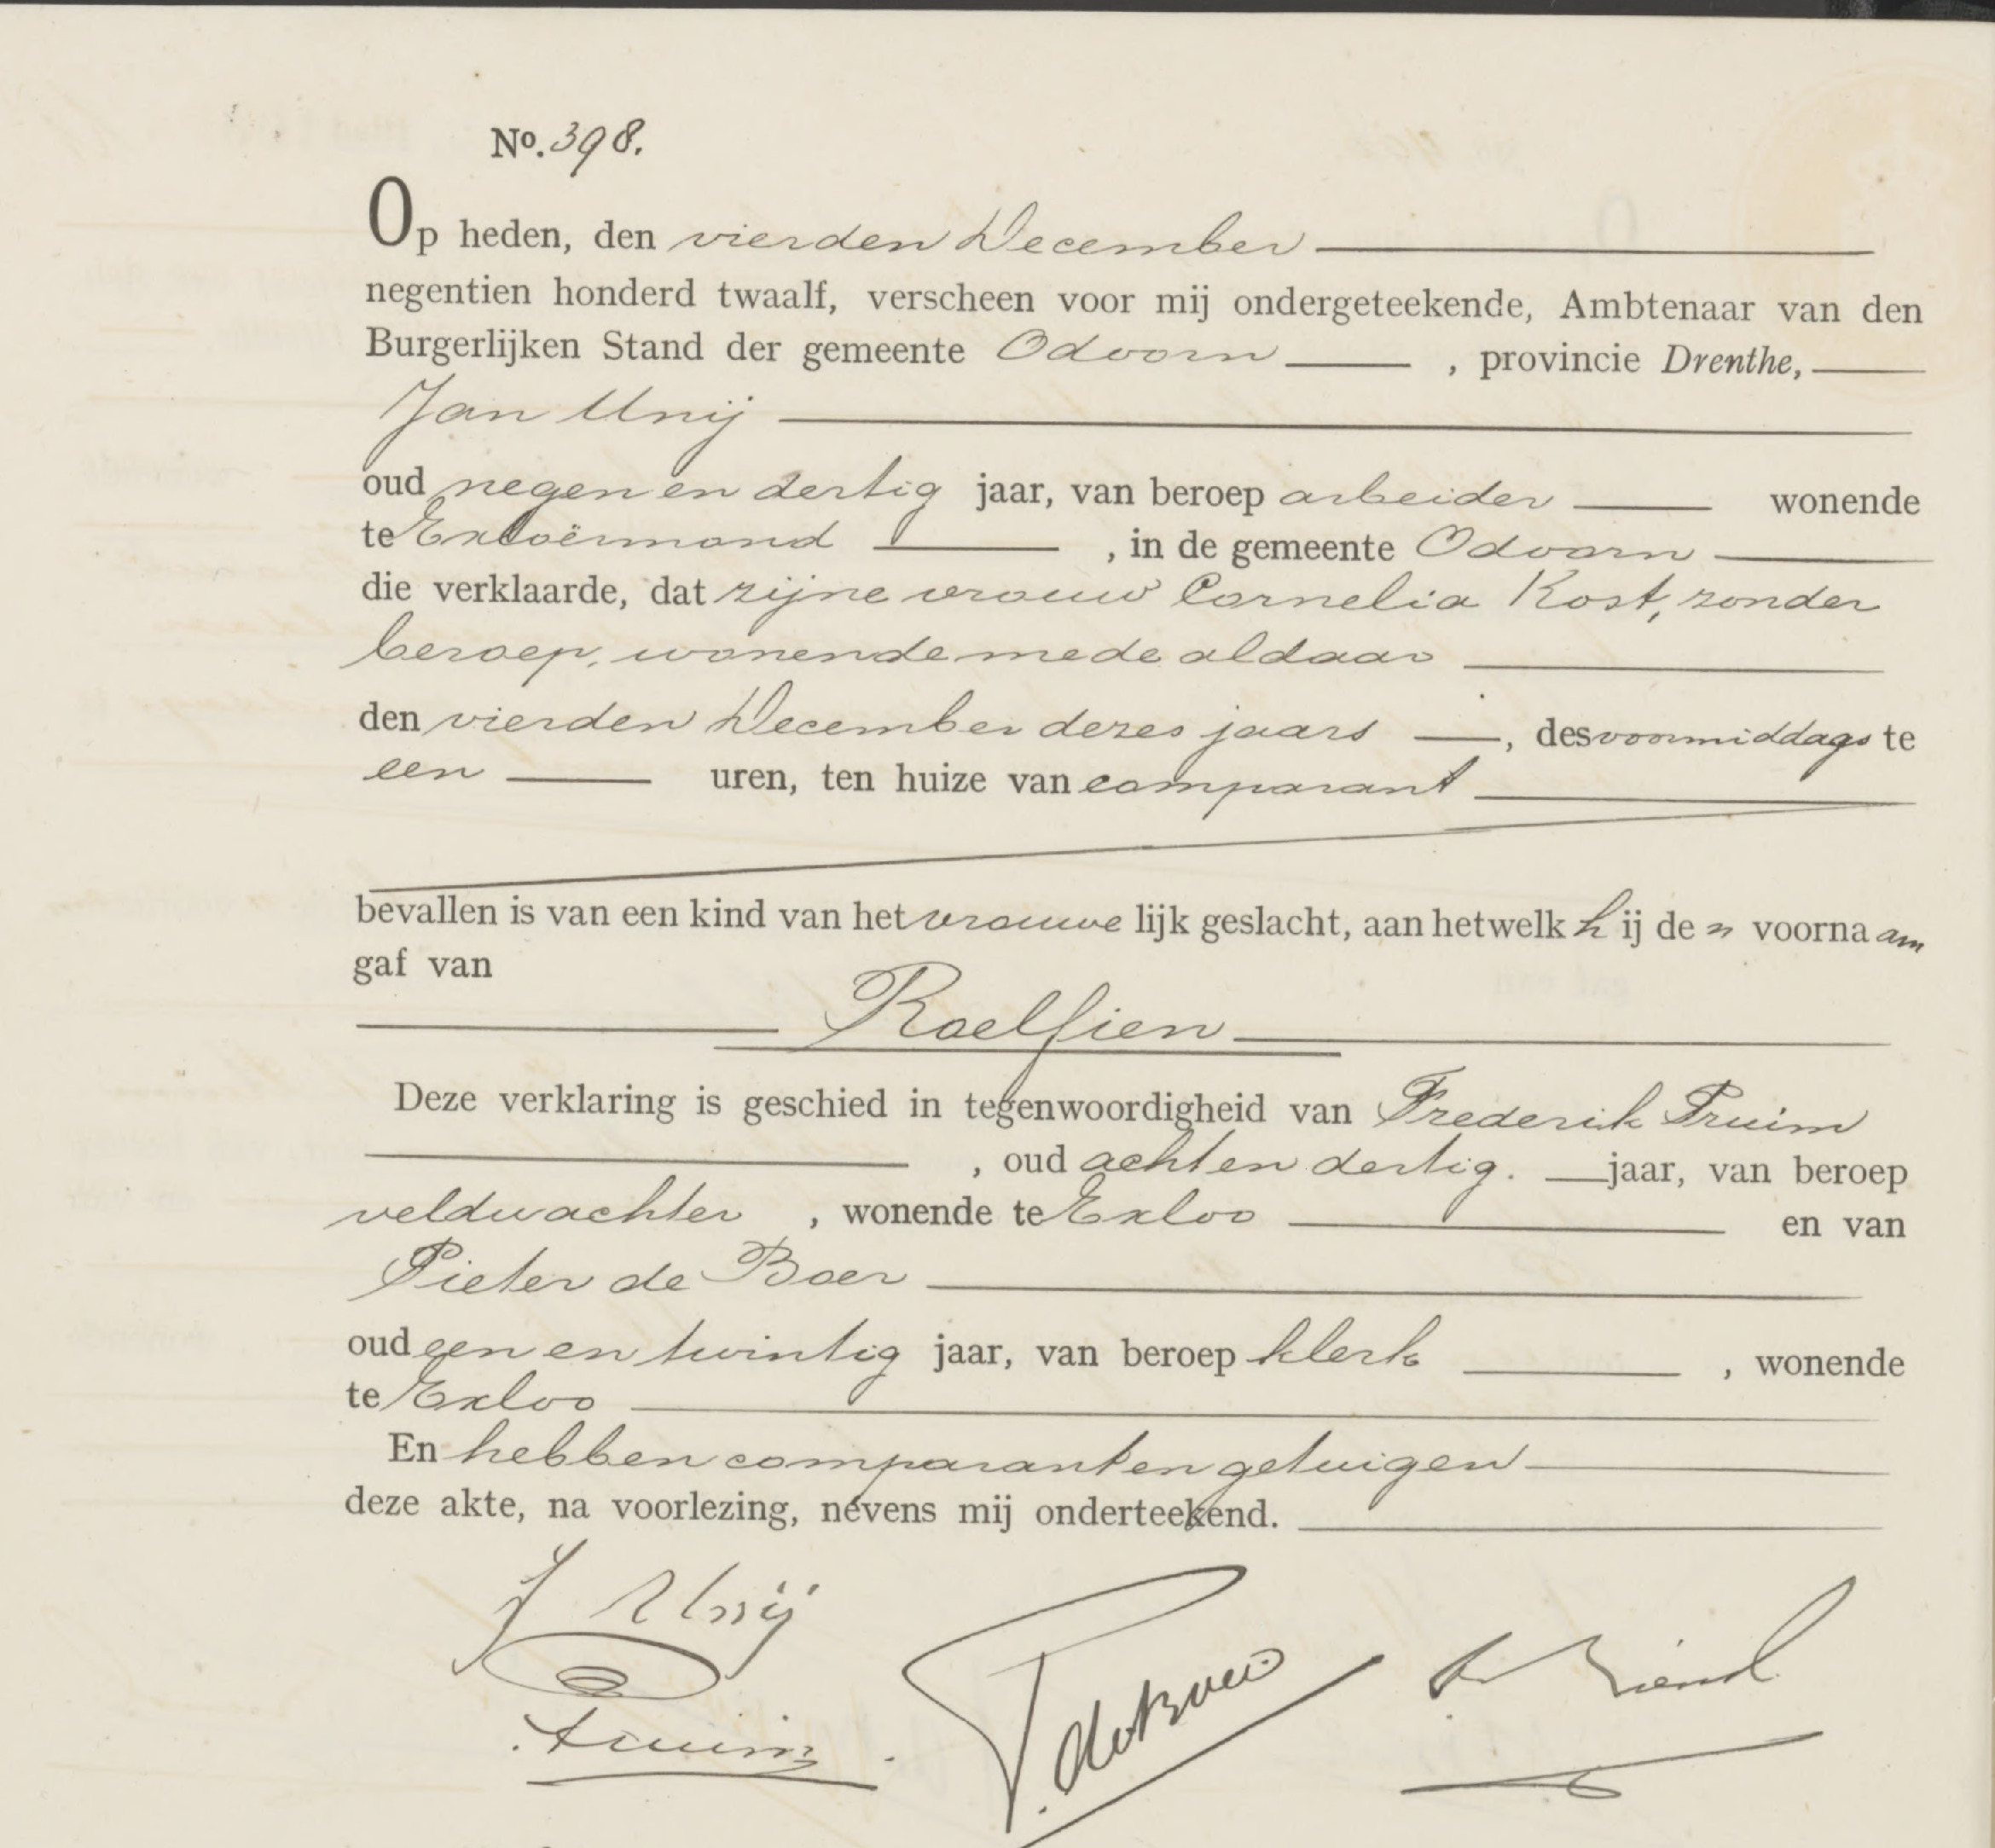 No. 398.
Op heden, den vierden December
negentien honderd twaalf, verscheen voor mij ondergeteekende, Ambtenaar van den
Burgerlijken Stand der gemeente Odoorn, provincie Drenthe,
Jan Unij
oud negen en dertig jaar, van beroep arbeider wonende
te Exloërmond, in de gemeente Odoorn
die verklaarde, dat zijne vrouw Cornelia Kost, zonder
beroep, wonende mede aldaar
den vierden December dezes jaars, des voormiddags te
een uren, ten huize van comparant
bevallen is van een kind van het vrouwelijk geslacht, aan hetwelk hij den voornaam
gaf van
Roelfien
Deze verklaring is geschied in tegenwoordigheid van Frederik Pruim
, oud acht en dertig. jaar, van beroep
veldwachter, wonende te Exloo en van
Pieter de Boer
oud een en twintig jaar, van beroep klerk, wonende
te Exloo
En hebben comparant en getuigen
deze akte, na voorlezing, nevens mij onderteekend.
J Unij
Pruim
P. de Boer